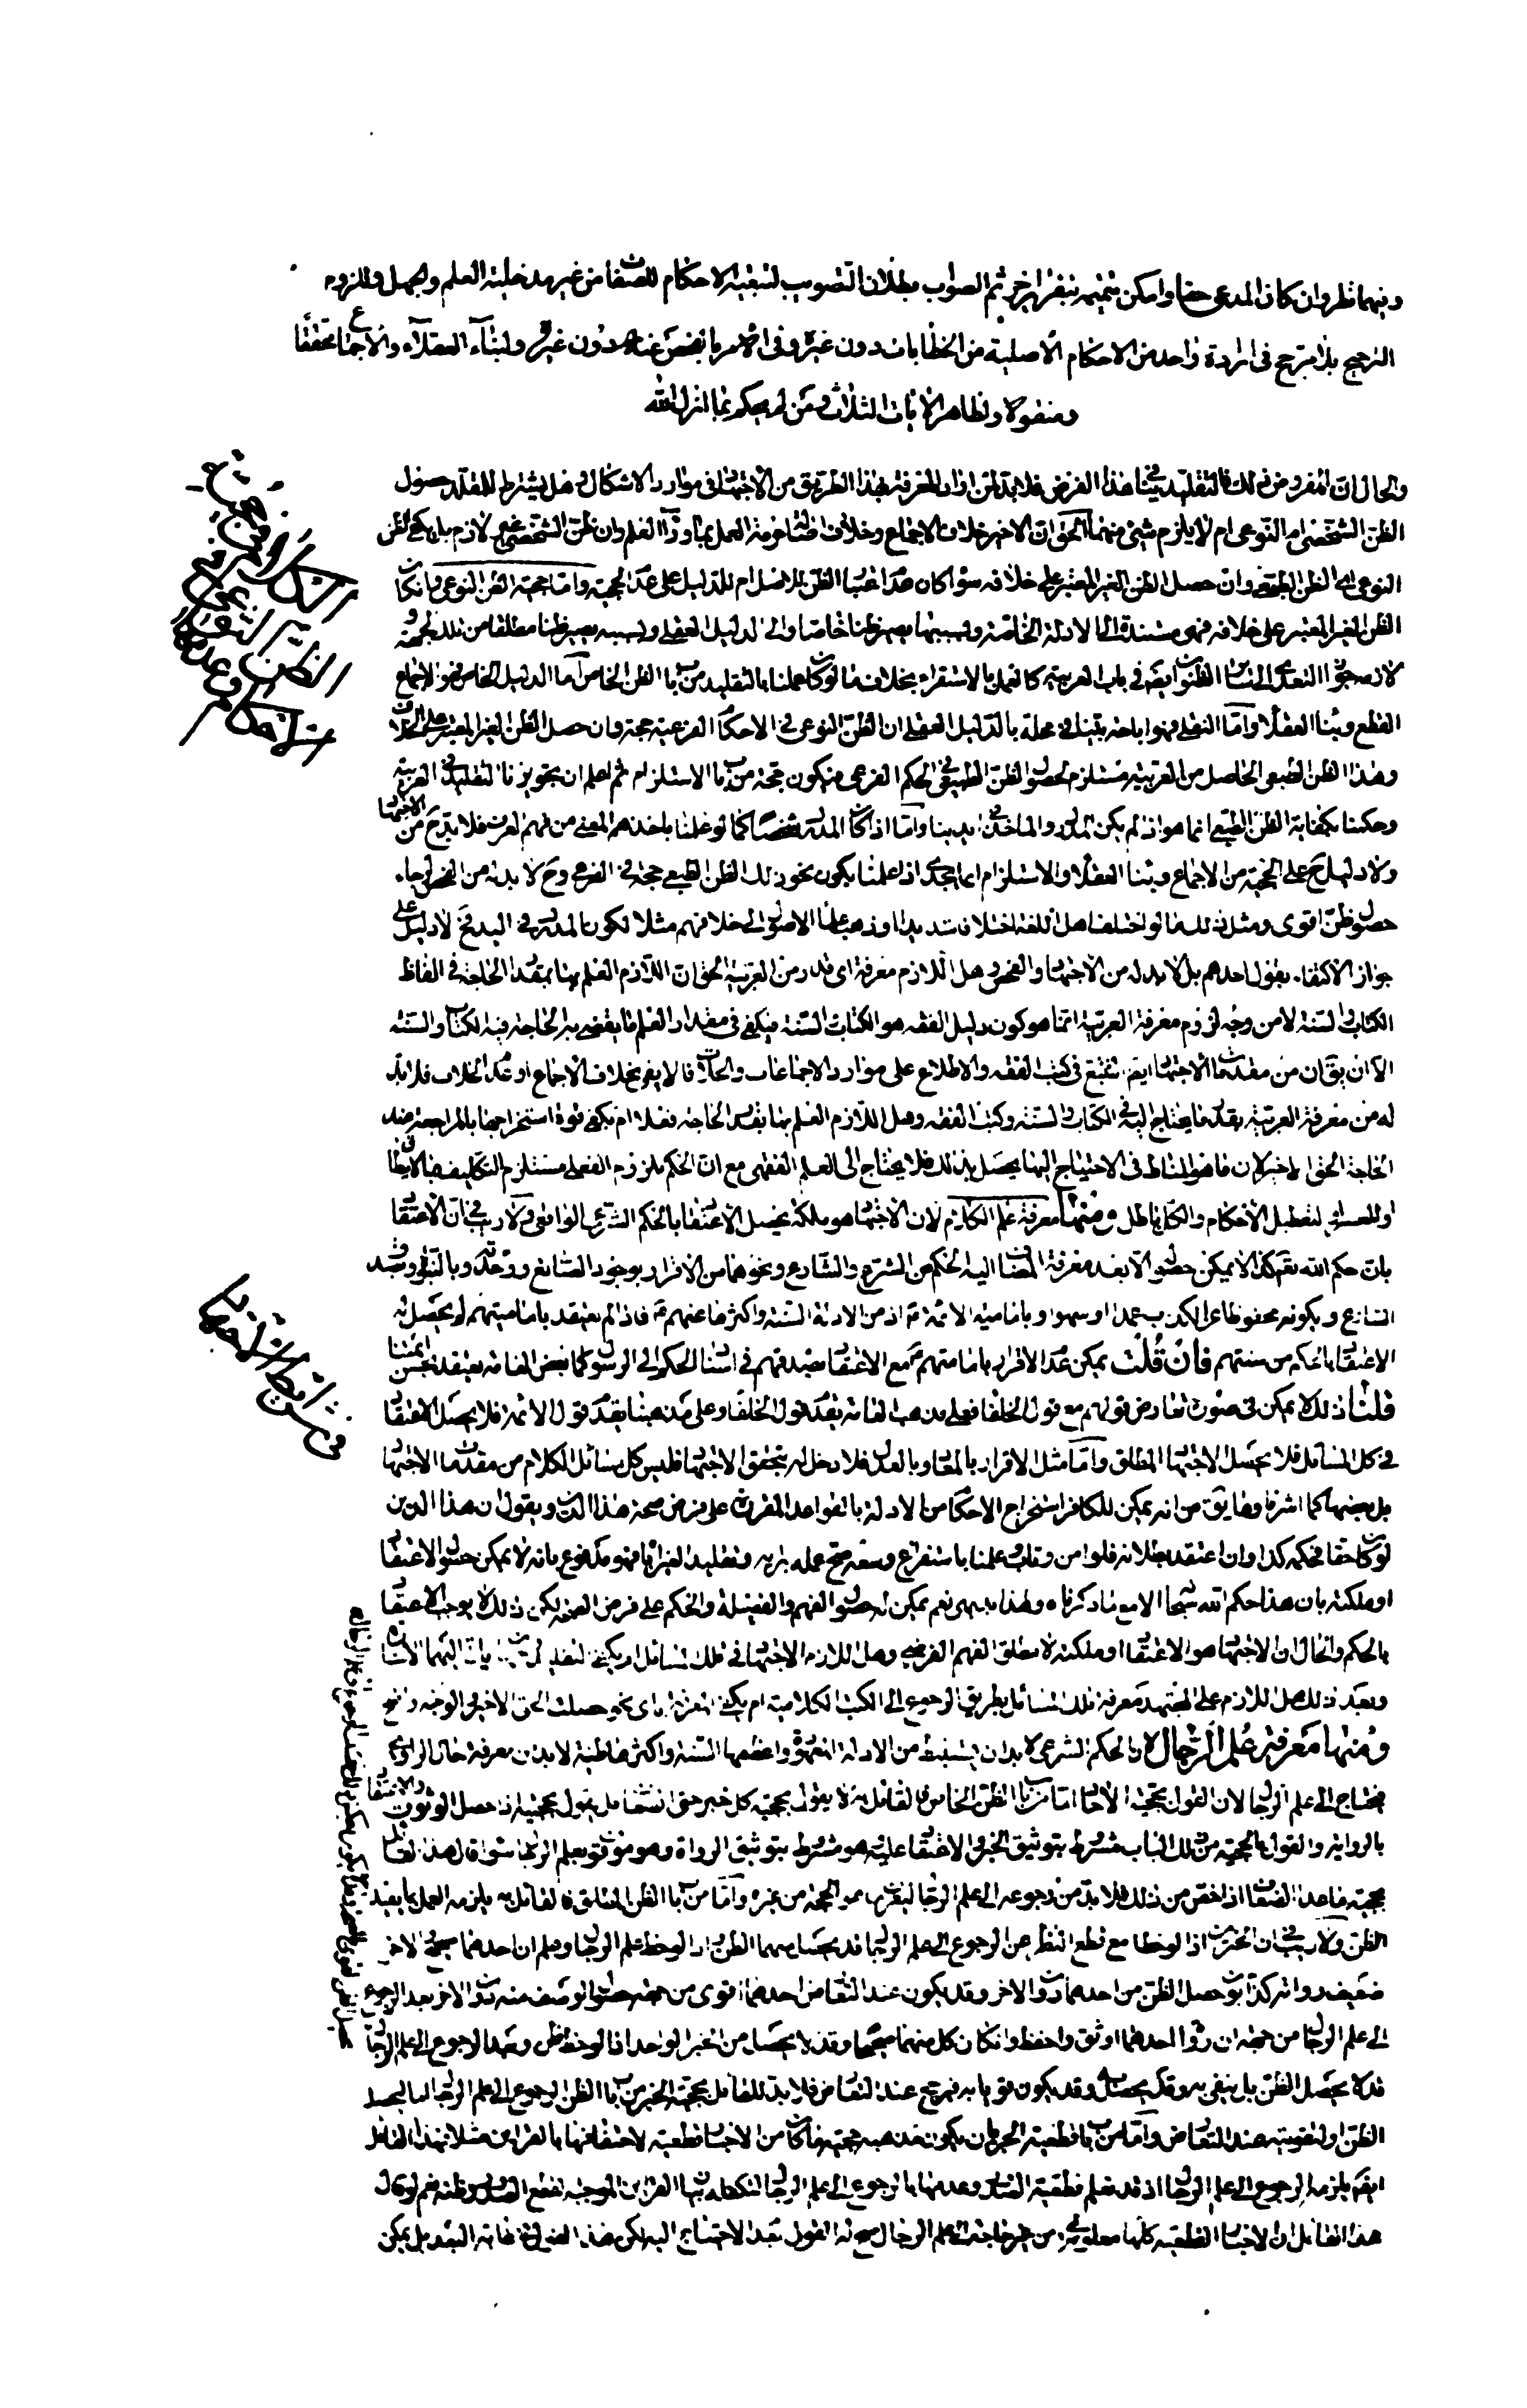 وفيهما نظر وان كان المدعى حقا وامكن تتميمه بتقرير اخر ثم الصواب بطلان التصويب لتبعية الاحكام للصفات من غير مدخلية العلم والجهل وللزوم
الترجيح بلا مرجح فى ارادة واحد من الاحكام الأصلية من الخطابات دون غيره وفى الامر بالفحص عنه دون غيره ولبناء العقلاء والاجماع محققا
ومنقولا ولظاهر الايات الثلاث ومن لم يحكم بما انزل الله
والحال ان المفروض فى ذلك فالتقليد فى هذا الفرض فلا بد لمن اراد المعرفة بهذا الطريق من الاجتهاد فى موارد الاشكال وهل يشترط للمقلد حصول
الظن الشخصى ام النوعى ام لا يلزم شئ منهما الحق ان الاخير خلاف الاجماع وخلاف اصالة حرمة العمل بما وراء العلم وان ظن الشخصى غير لازم بل يكفى الظن
النوعى اى الظن الطبعى وان حصل الظن الغير المعتبر على خلافه سواء كان عدم اعتبار الظن للاصل ام للدليل على عدم الحجية واما حجية الظن النوعى وان كان
الظن الغير المعتبر على خلافه فهى مستندة الى الادلة الخاصة وبسببها يصير ظنا خاصا والى الدليل العقلى وبسببه يصير ظنا مطلقا من تلك الجهة و
لازمه جواز التعدى الى سائر الظنون ايضا فى باب العربية كالعمل بالاستقراء بخلاف ما لو كان عملنا بالتقليد من باب الظن الخاص اما الدليل الخاص فهو الاجماع
القطعى وبناء العقلاء واما العقلى فهو انا حيث بينا فى محله بالدليل العقلى ان الظن النوعى فى الاحكام الفرعية حجة وان حصل الظن الغير المعتبر على الخلاف
وهذا الظن الطبعى الحاصل من العربية مستلزم لحصول الظن الطبيعى فى الحكم الفرعى فيكون حجة من باب الاستلزام ثم اعلم ان تجويزنا التقليد فى العربية
وحكمنا بكفاية الظن الطبعى انما هو اذا لم يكن المدرك والماخذ بايدينا واما اذا كان المدرك مشخصا كما لو علمنا باخذهم المعنى من فهم العرف فلا بد ح من الاجتهاد
ولا دليل ح على الحجية من الاجماع وبناء العقلاء والاستلزام انما يجدى اذا علمنا بكون نحو ذلك الظن الطبعى حجة فى الفرع وح لا بد له من الفحص لرجاء
حصول ظن اقوى ومثل ذلك ما لو اختلف اهل اللغة اختلافا شديدا او ذهب علماء الاصول الى خلافهم مثلا لكون المدرك فى اليد فح لا دليل على
جواز الاكتفاء بقول احدهم بل لا بد له من الاجتهاد والفحص وهل اللازم معرفة اى قدر من العربية الحق ان اللازم العلم بها بقدر الحاجة فى الفاظ
الكتاب والسنة لا من وجه لزوم معرفة العربية انما هو كون دليل الفقه هو الكتاب والسنة فيكفى فى مقدار العلم ما يقضى به الحاجة فيه الكتاب والسنة
الا ان يق ان من مقدمات الاجتهاد ايضا التتبع فى كتب الفقه والاطلاع على موارد الاجماعات والخلاف لئلا يقع بخلاف الاجماع او عدم الخلاف فلا بد
له من معرفة العربية بقدر ما يحتاج اليه فى الكتاب والسنة وكتب الفقه وهل اللازم العلم بها بقدر الحاجة فعلا ام يكفى قوة استخراجها بالمراجعة عند
الحاجة الحق الاخير لان ما هو المناط فى الاحتياج اليها يحصل بذلك فلا يحتاج الى العلم الفعلى مع ان الحكم بلزوم الفعلى مستلزم للتكليف بما لا يطاق
او للعسر او لتعطيل الأحكام والكل باطل ومنها معرفة علم الكلام لان الاجتهاد هو ملكة تحصيل الاعتقاد بالحكم الشرعى الواقعى ولا ريب فى ان الاعتقاد
بان حكم الله تعالى كذا لا يمكن حصوله الا بعد معرفة المضاف اليه الحكم من الشرع والشارع ونحوهما من الاقرار بوجود الصانع ووحدته وبالنبى وصدق
الشارع وبكونه محفوظا عن الكذب عمدا او سهوا وبامامية الائمة ع اذ من الادلة السنة واكثرها عنهم ع فاذا لم يعتقد بامامتهم لم يحصل له
الاعتقاد بالحكم من سنتهم فان قلت يمكن عدم الاقرار بامامتهم ع مع الاعتقاد بصدقهم فى اسناد الحكم الى الرسول كما بعض العامة يعتقد بحسن ائمتنا
قلنا ذلك لا يمكن فى صورة تعارض قولهم مع قول الخلفاء فعلى مذهب العامة يقدم قول الخلفاء وعلى مذهبنا يقدم قول الائمة فلا يحصل الاعتقاد
فى كل المسائل فلا يحصل الاجتهاد المطلق واما مثل الاقرار بالمعاد وبالعدل فلا دخل له بتحقق الاجتهاد فليس كل مسائل الكلام من مقدمات الاجتهاد
بل بعضها كما اشرنا وما يق من انه يمكن للكافر استخراج الاحكام من الادلة بالقواعد المقررة على فرض صحة هذا الدين ويقول ان هذا الدين
لو كان حقا فحكمه كذا وان اعتقد بطلانه فلو امن وتاب وعلمنا باستفراغ وسعه صح عمله برايه وتقليد الغير اياه فهو مدفوع بانه لا يمكن حصول الاعتقاد
او ملكته بان هذا حكم الله تعالى الا مع ما ذكرناه وهذا بديهى نعم يمكن له حصول الفهم والفضيلة والحكم على فرض الصحة لكن ذلك لا يوجب الاعتقاد
بالحكم والحال ان الاجتهاد هو الاعتقاد او ملكته لا مطلق الفهم الفرضى وهل اللازم الاجتهاد فى تلك المسائل او يكفى التقليد
وبعد ذلك هل اللازم على المجتهد معرفة تلك المسائل بطريق الرجوع الى الكتب الكلامية ام يكفى المعرفة باى نحو حصلت الحق الاخير والوجه واضح
ومنها معرفة علم الرجال لان الحكم الشرعى لا بد ان يستنبط من الادلة المعهودة واعظمها السنة واكثرها ظنية لا بد من معرفة حال الراوى
فيحتاج الى علم الرجال لان القول بحجية الاخبار اما من باب الظن الخاص فالقائل به لا يقول بحجية كل خبر حتى الضعاف بل يقول بحجيته اذا حصل الوثوق والاعتقاد
بالرواية والقول بالحجية من ذلك الباب مشروط بتوثيق الخبر والاعتقاد عليه وهو مشروط بتوثيق الرواة وهو موقوف بعلم الرجال سواء قال هذا القائل
بحجية ما عدا الضعاف او اخص من ذلك فلا بد من رجوعه الى علم الرجال ليعرف ما هو الحجة من غيره واما من باب الظن المطلق فالقائل به يلزمه العمل بما يفيد
الظن ولا ريب فى ان الخبرين اذا لوحظا مع قطع النظر عن الرجوع الى علم الرجال قد يحصل منهما الظن واذا لوحظ علم الرجال وعلم ان احدهما صحيح والاخر
ضعيف رواته كذابون حصل الظن من احدهما دون الاخر وقد يكون عند التعارض احدهما اقوى من جهة حصول الوصف منه دون الاخر بعد الرجوع
الى علم الرجال من جهة ان رواة احدهما اوثق واحفظ وان كان كل منهما صحيحا وقد لا يحصل من الخبر الواحد اذا لوحظ ظن وبعد الرجوع الى علم الرجال
قد لا يحصل الظن بل ينفى به وقد يحصل وقد يكون مقويا به فيرجح عند التعارض فلا بد للقائل بحجية الخبر من باب الظن الرجوع الى علم الرجال اما لتحصيل
الظن او لتقويته عند التعارض واما من باب قطعية الخبر بان يكون مذهبه حجية ما كان من الاخبار قطعية لاحتفافها بالقراين مثلا فهذا القائل
ايضا يلزمه الرجوع الى علم الرجال اذ قد يعلم قطعية الصدور وعدمها بالرجوع الى علم الرجال القراين الموجبة لقطع الصدور وظنه نعم لو قال
هذا القائل ان الاخبار القطعية كلها معلومة من غير حاجة الى علم الرجال صح له القول بعدم الاحتياج اليه لكن هذا القول فى غاية البعد بل يمكن